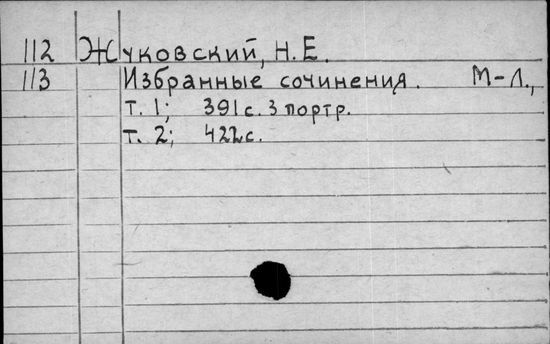 112 Жуковский, Н.Е.
113 Избранные сочинения. М-Л.,
т. 1; 391с. 3 портр.
т. 2; 422с.